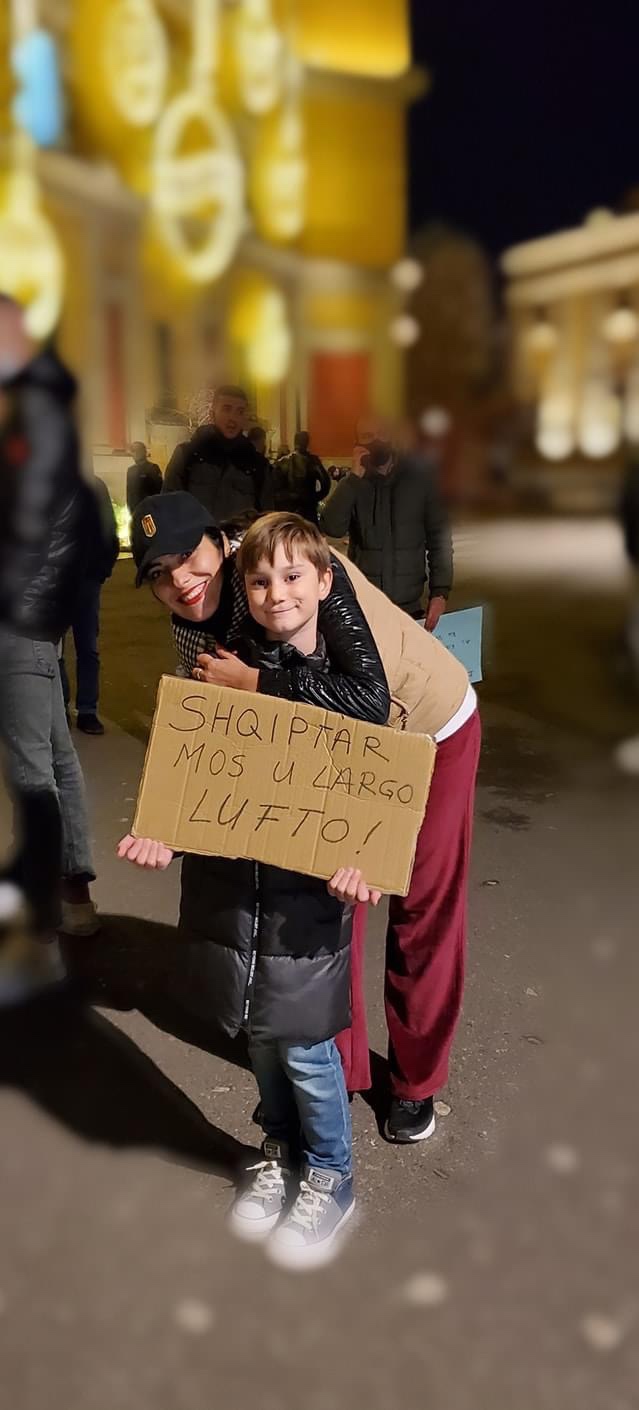 SHQIPTAR
MOS U LARGO
LUFTO!